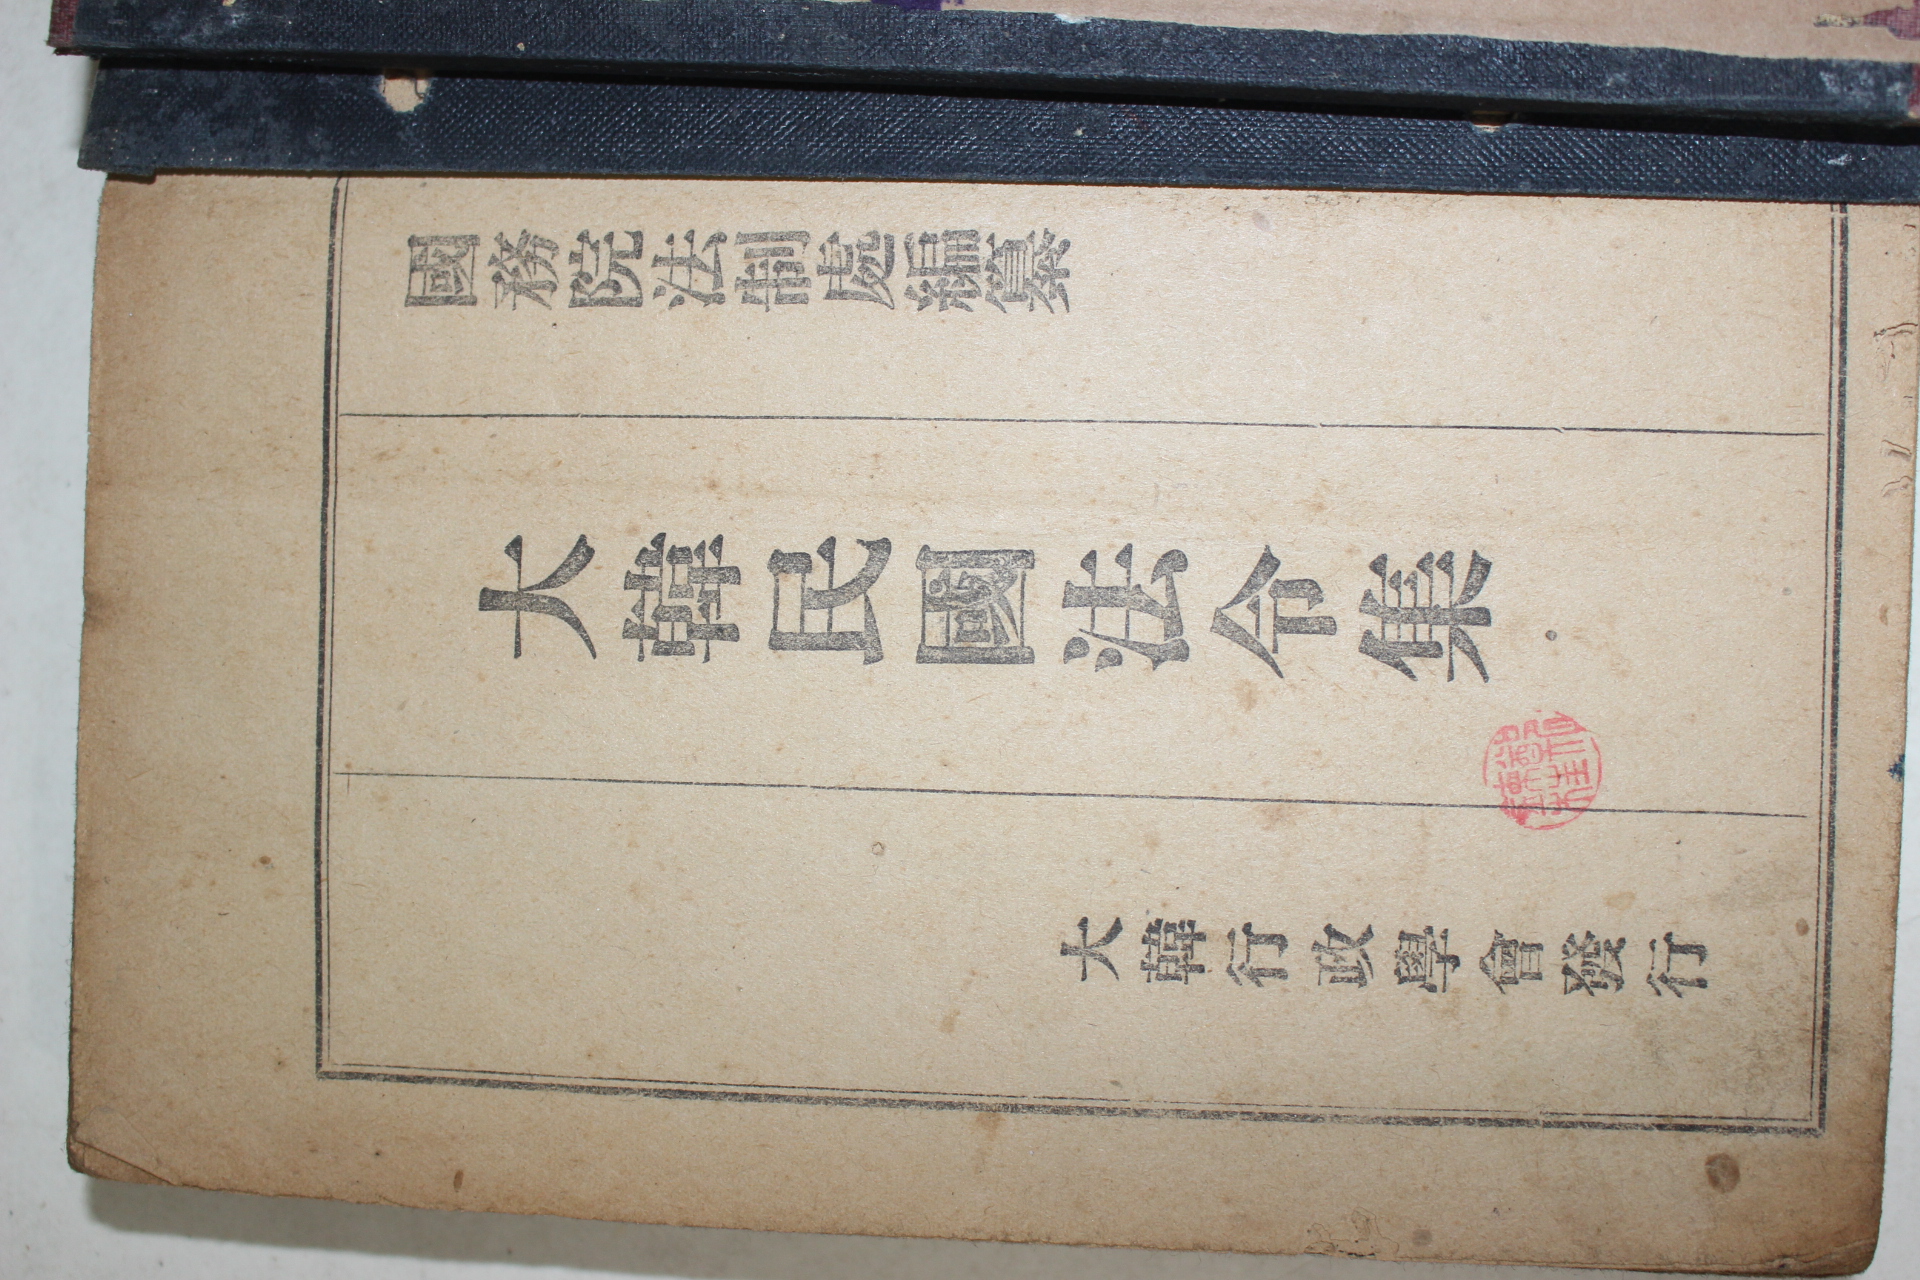 國務院法制處編纂
大韓民國法令集
大韓行政學會發行